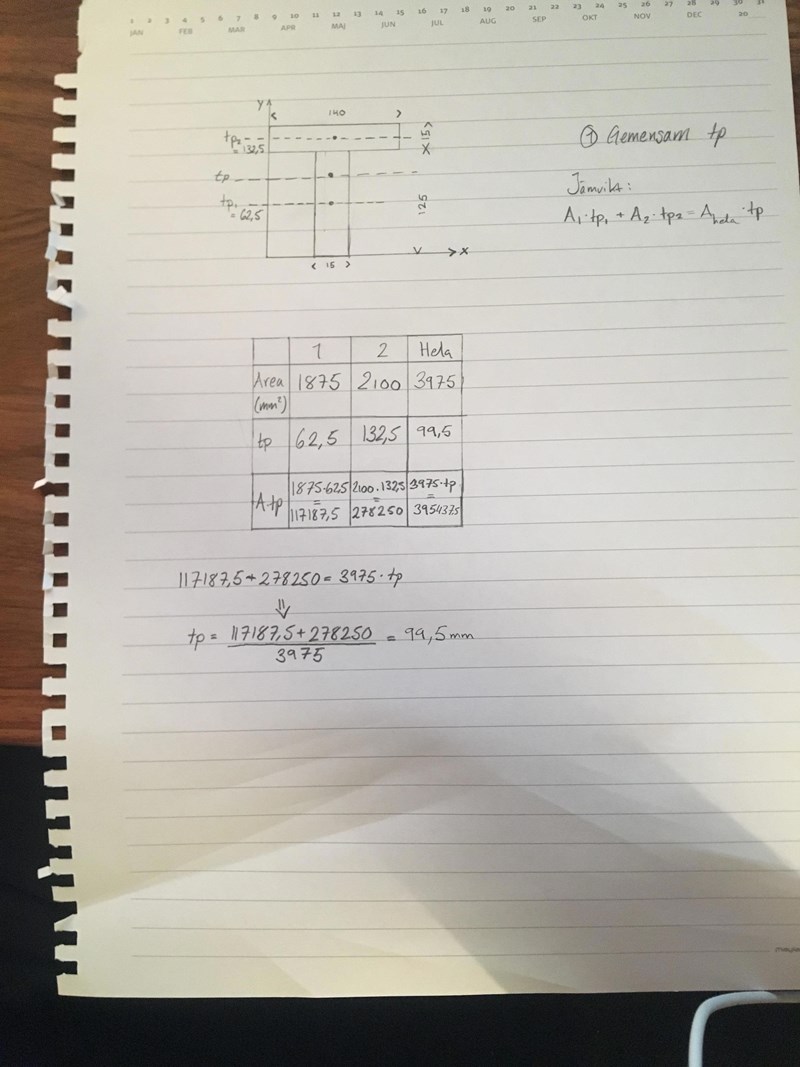 1 2 3 4 5 6 7 8 9 10 11 12 13 14 15 16 17 18 19 20 21 22 23 24 25 26 27 28 29 30 31
JAN FEB MAR APR MAJ JUN JUL AUG SEP OKT NOV DEC 20
y
140
tp₂
= 132,5
15
tp
tp₁
= 62,5
125
x
15
① Gemensam tp
Jämvikt:
A₁·tp₁ + A₂·tp₂ = A hela ·tp
1 2 Hela
Area 1875 2100 3975
(mm²)
tp 62,5 132,5 99,5
1875·62,5 2100·132,5 3975·tp
A·tp = = =
117187,5 278250 395437,5
117187,5 + 278250 = 3975 · tp
⇓
tp = 117187,5 + 278250 = 99,5 mm
3975